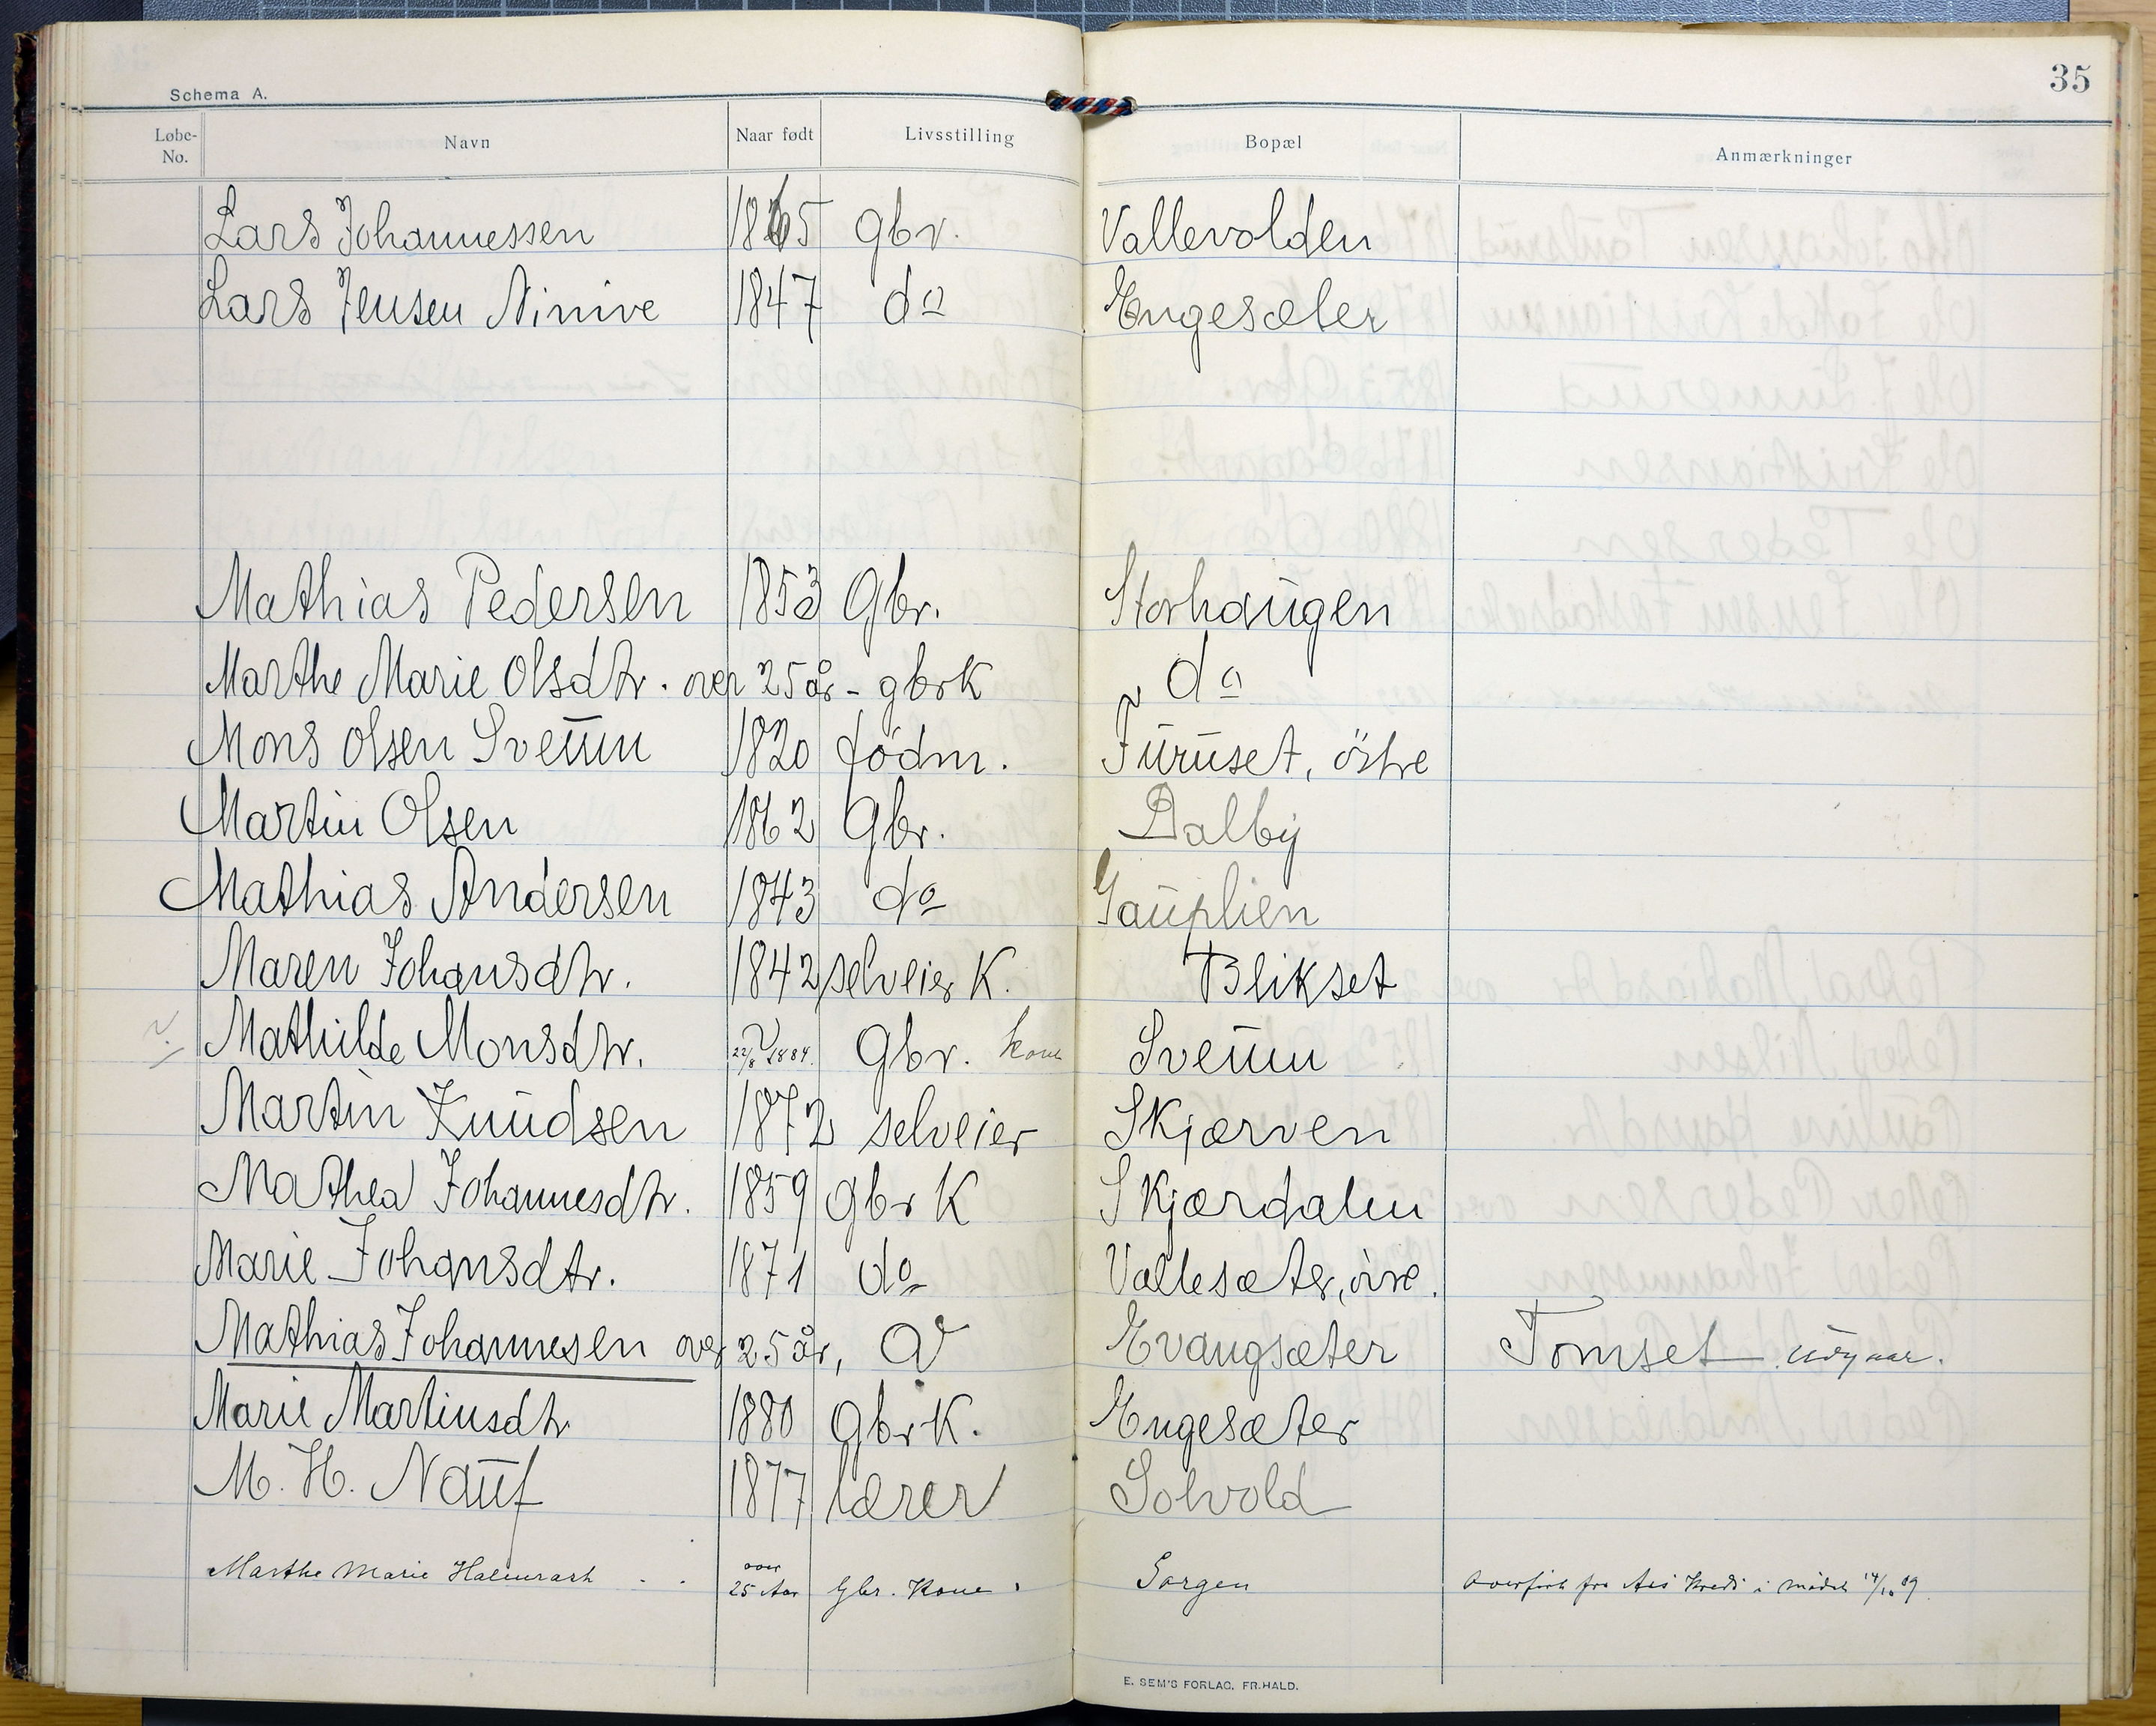 35
Schema A.
Løbe-No. Navn Naar født Livsstilling Bopæl Anmærkninger
Lars Johannessen 1865 gbr. Vallevolden
Lars Jensen Ninive 1847 do Engesæter
Mathias Pedersen 1853 Gbr. Storhaugen
Marthe Marie Olsdtr. over 25 år - gbrk do
Mons Olsen Sveum 1820 födm. Furuset, östre
Martin Olsen 1862 Gbr. Dalby
Mathias Andersen 1843 do Gauplien
Maren Johansdtr. 1842 selveier K. Blikset
Mathilde Monsdtr. 22/8 1884. Gbr. kone Sveum
Martin Knudsen 1872 selveier Skjærven
Mathea Johannesdtr. 1859 gbr K Skjærdalen
Marie Johansdtr. 1871 do Vallesæter, övre.
Mathias Johannesen over 25 år, Evangsæter Tomset
Marie Martinsdtr 1880 GbrK. Engesæter
M. H. Nauf 1877 lærer Solvold
Marthe Marie over 25 Aar Gbr. Kone Sorgen Overført fra Aas Kreds i mødet 14/10 09.
E. SEM'S FORLAG, FR.HALD.